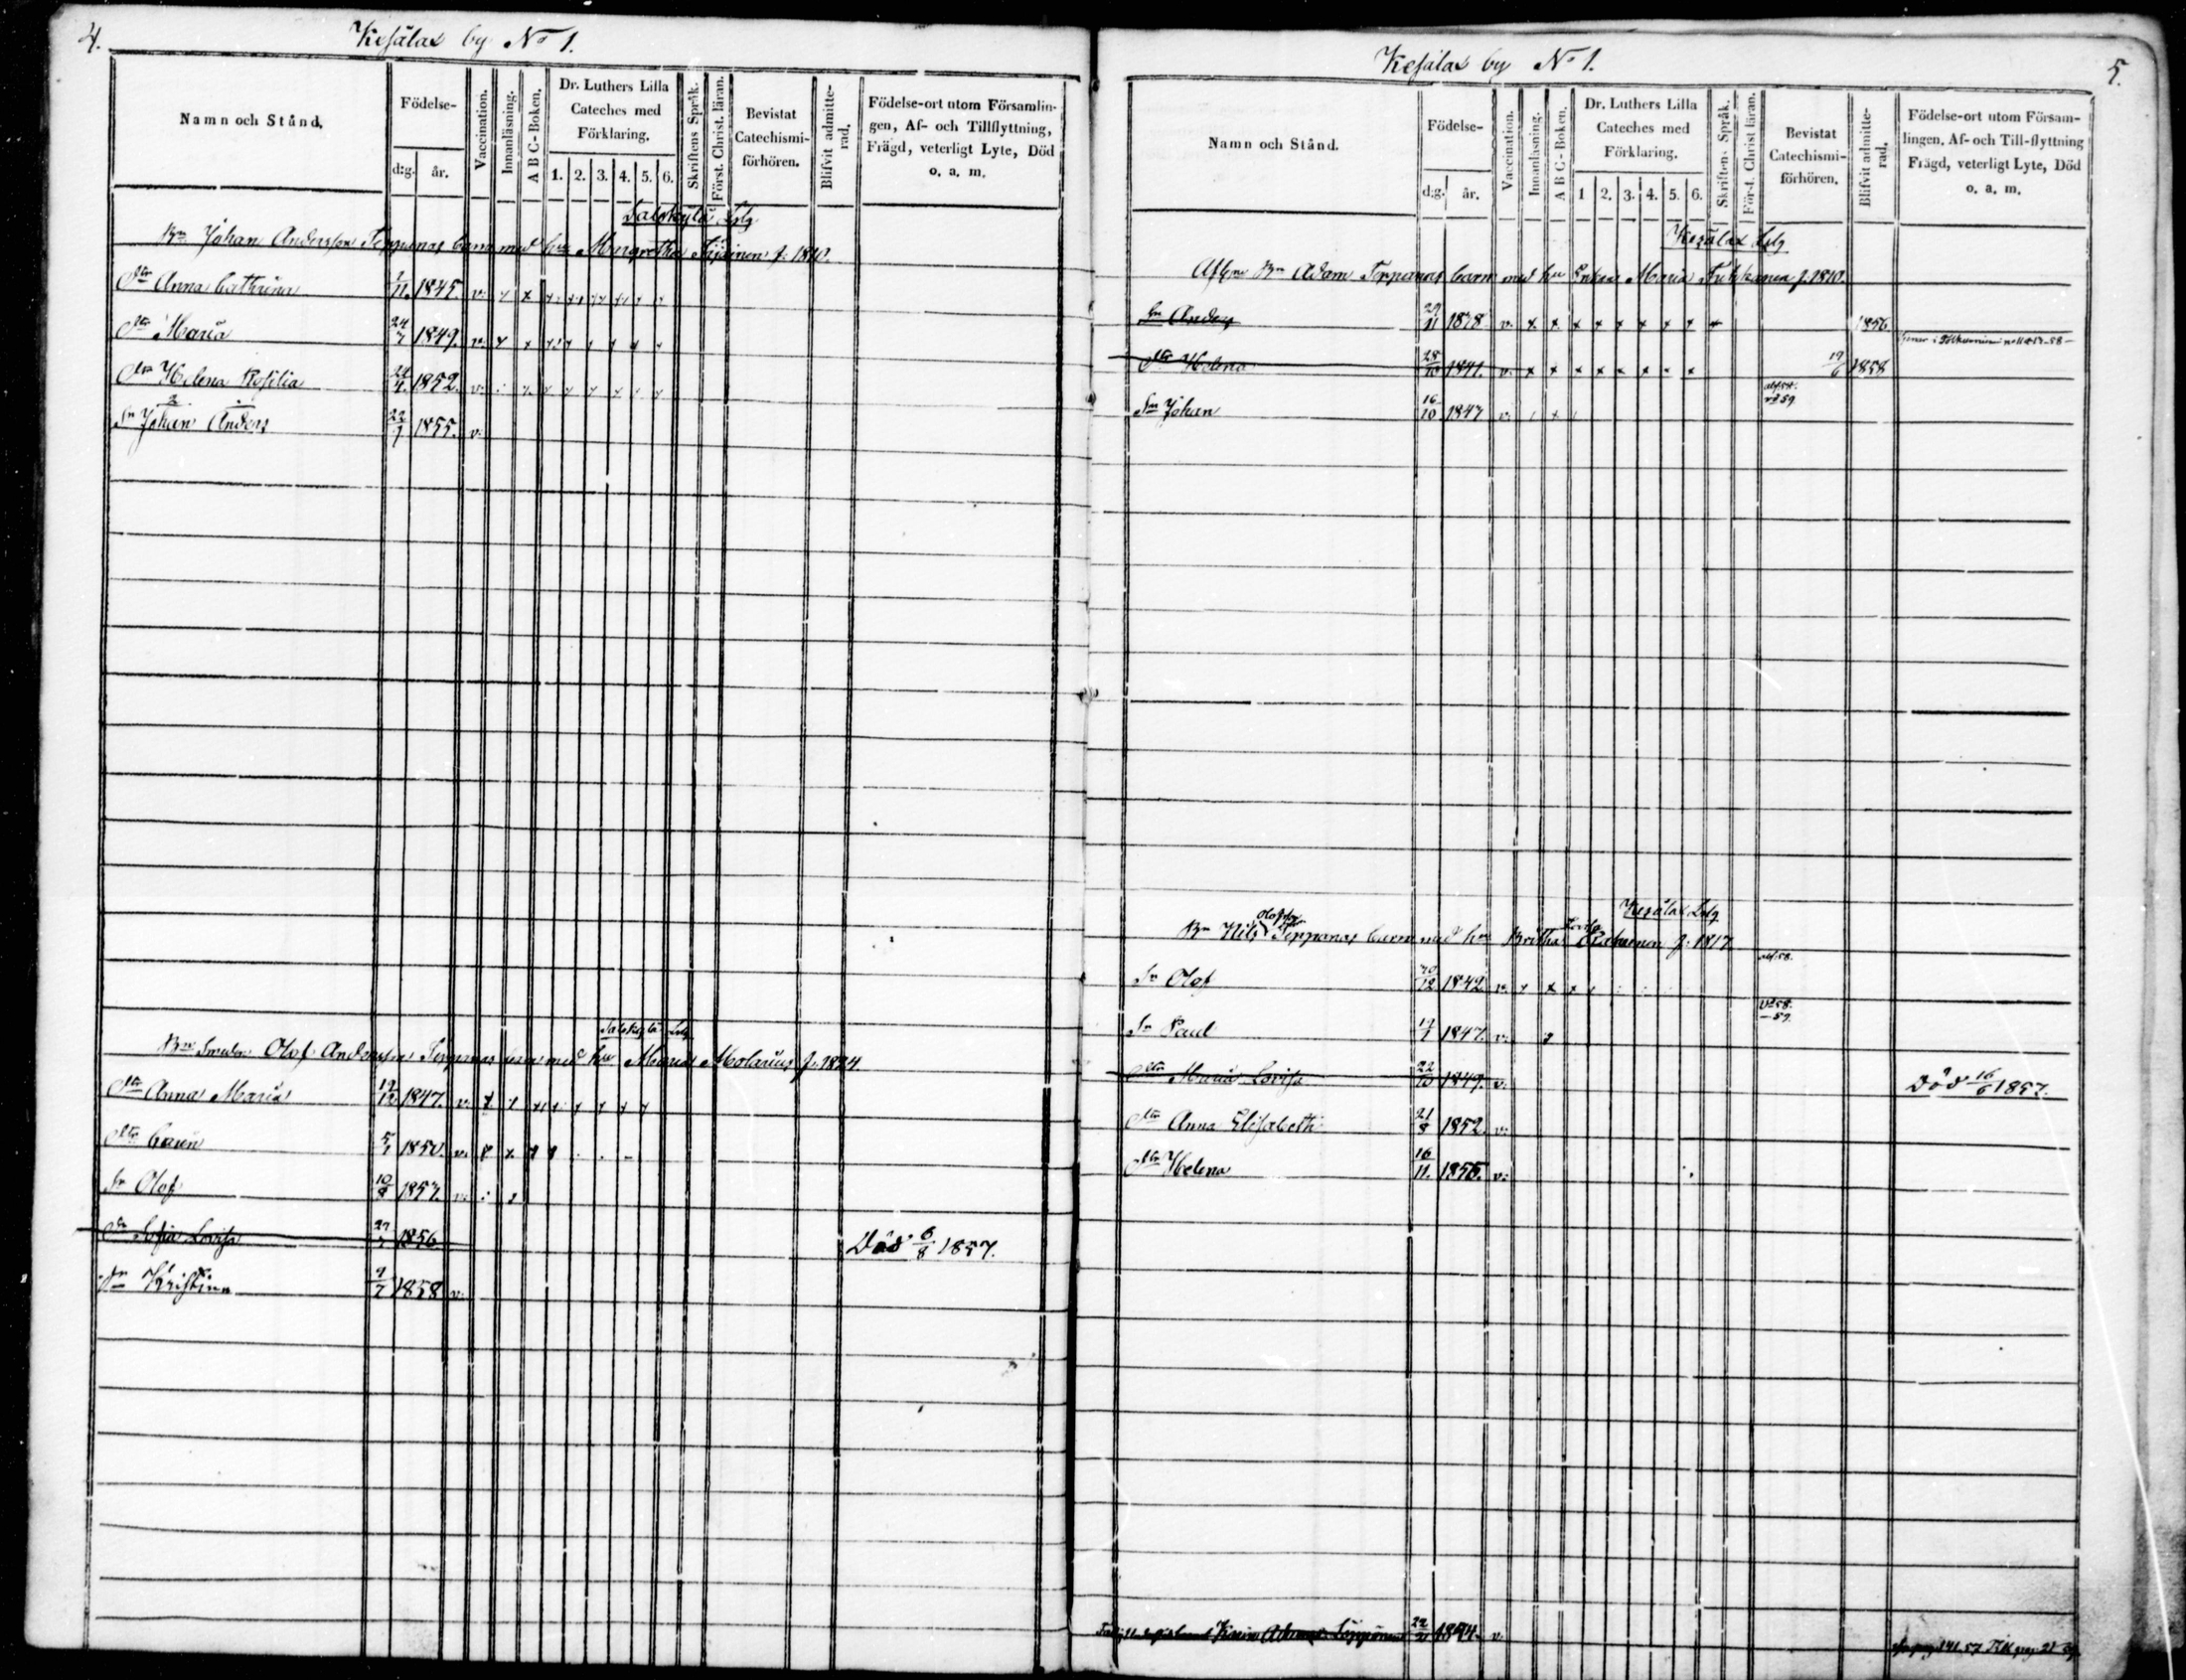 4.
Kesälax by No 1.
Namn och Stånd.
Födelse-
d:g. år.
Vaccination.
Innanläsning.
A B C- Boken.
Dr. Luthers Lilla
Cateches med
Förklaring.
1. 2. 3. 4. 5. 6.
Skriftens Språk.
Först. Christ. läran.
Bevistat
Catechismi-
förhören.
Blifvit admitte-
rad.
Födelse-ort utom Församlin-
gen, Af- och Tillflyttning,
Frägd, veterligt Lyte, Död
o. a. m.
Bn Johan Andersson Teppanas barn med hu Margretha f. 1810.
Dtr Anna Cathrina 11. 1845. v.
Dtr Maria 24/7 1849. v.
Dtr Helena Rosilia 24/4 1852. v.
Sn Johan Anders 22/1 1855. v.
Bn Olof Andersson Teppanas barn med hu Maria Molarius f. 1824.
Dtr Anna Maria 19/12 1847. v.
Dtr Carin 1850. v.
Sn Olof 10/8 1857. v.
Dr Sofia Lovisa 1856. Död 6/8 1857.
Kristina 7 1858 v.
Kesälax by No 1.
5.
Namn och Stånd.
Födelse-
d:g. år.
Vaccination.
Innanläsning.
A B C - Boken.
Dr. Luthers Lilla
Cateches med
Förklaring.
1 2. 3. 4. 5. 6.
Skriftens Språk.
Först. Christ läran.
Bevistat
Catechismi-
förhören.
Blifvit admitte-
rad.
Födelse-ort utom Försam-
lingen, Af- och Till-flyttning
Frägd, veterligt Lyte, Död
o. a. m.
Kesälax
Bn Adam Teppanas barn med hu Enkan Maria f. 1810.
Sn Anders 29/11 1838 v. 1856
Dtr Helena 28/10 1841. v. 19/6 1858
Sn Johan 16/10 1847 v.
Kesälax
Bn Nils Olofson Teppanas barn med hu Britha f. 1817
Sn Olof 12 1842 v.
Sn Paul 1847. v.
Dtr Maria Lovisa 22/10 1849. v. Död 16/6 1857.
Dtr Anna Elisabeth 21/8 1852. v.
Dtr Helena 16/11. 1855. v.
22 1854. v.